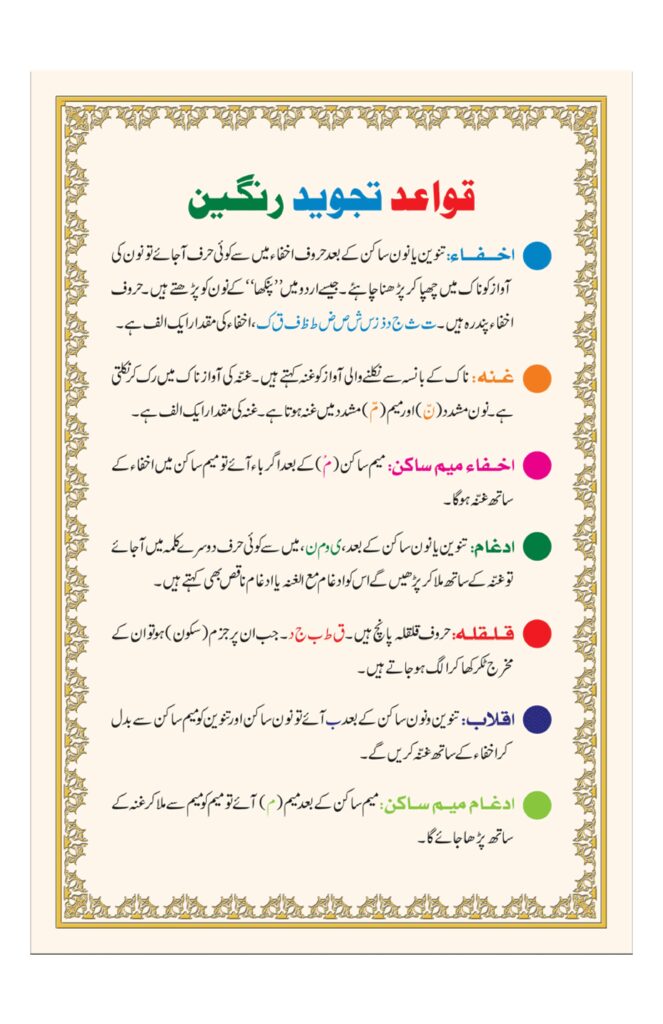 قواعد تجوید رنگین
اخفاء: تنوین یا نون ساکن کے بعد حروف اخفاء میں سے کوئی حرف آجائے تو نون کی
آواز کو ناک میں چھپا کر پڑھنا چاہئے۔ جیسے اردو میں ’’پنکھا‘‘ کے نون کو پڑھتے ہیں۔ حروف
اخفاء پندرہ ہیں۔ ت ث ج د ذ ز س ش ص ض ط ظ ف ق ک، اخفاء کی مقدار ایک الف ہے۔
غنہ: ناک کے بانسہ سے نکلنے والی آواز کو غنہ کہتے ہیں۔ غنّہ کی آواز ناک میں رک کر نکلتی
ہے۔ نون مشدد (نّ) اور میم (مّ) مشدد میں غنہ ہوتا ہے۔ غنہ کی مقدار ایک الف ہے۔
اخفاء میم ساکن: میم ساکن (مْ) کے بعد اگر باء آئے تو میم ساکن میں اخفاء کے
ساتھ غنّہ ہوگا۔
ادغام: تنوین یا نون ساکن کے بعد، ی و م ن، میں سے کوئی حرف دوسرے کلمہ میں آجائے
تو غنّہ کے ساتھ ملا کر پڑھیں گے اس کو ادغام مع الغنہ یا ادغام ناقص بھی کہتے ہیں۔
قلقلہ: حروف قلقلہ پانچ ہیں۔ ق ط ب ج د۔ جب ان پر جزم (سکون) ہو تو ان کے
مخرج ٹکر کھا کر الگ ہوجاتے ہیں۔
اقلاب: تنوین و نون ساکن کے بعد ب آئے تو نون ساکن اور تنوین کو میم ساکن سے بدل
کر اخفاء کے ساتھ غنّہ کریں گے۔
ادغام میم ساکن: میم ساکن کے بعد میم (م) آئے تو میم کو میم سے ملا کر غنہ کے
ساتھ پڑھا جائے گا۔